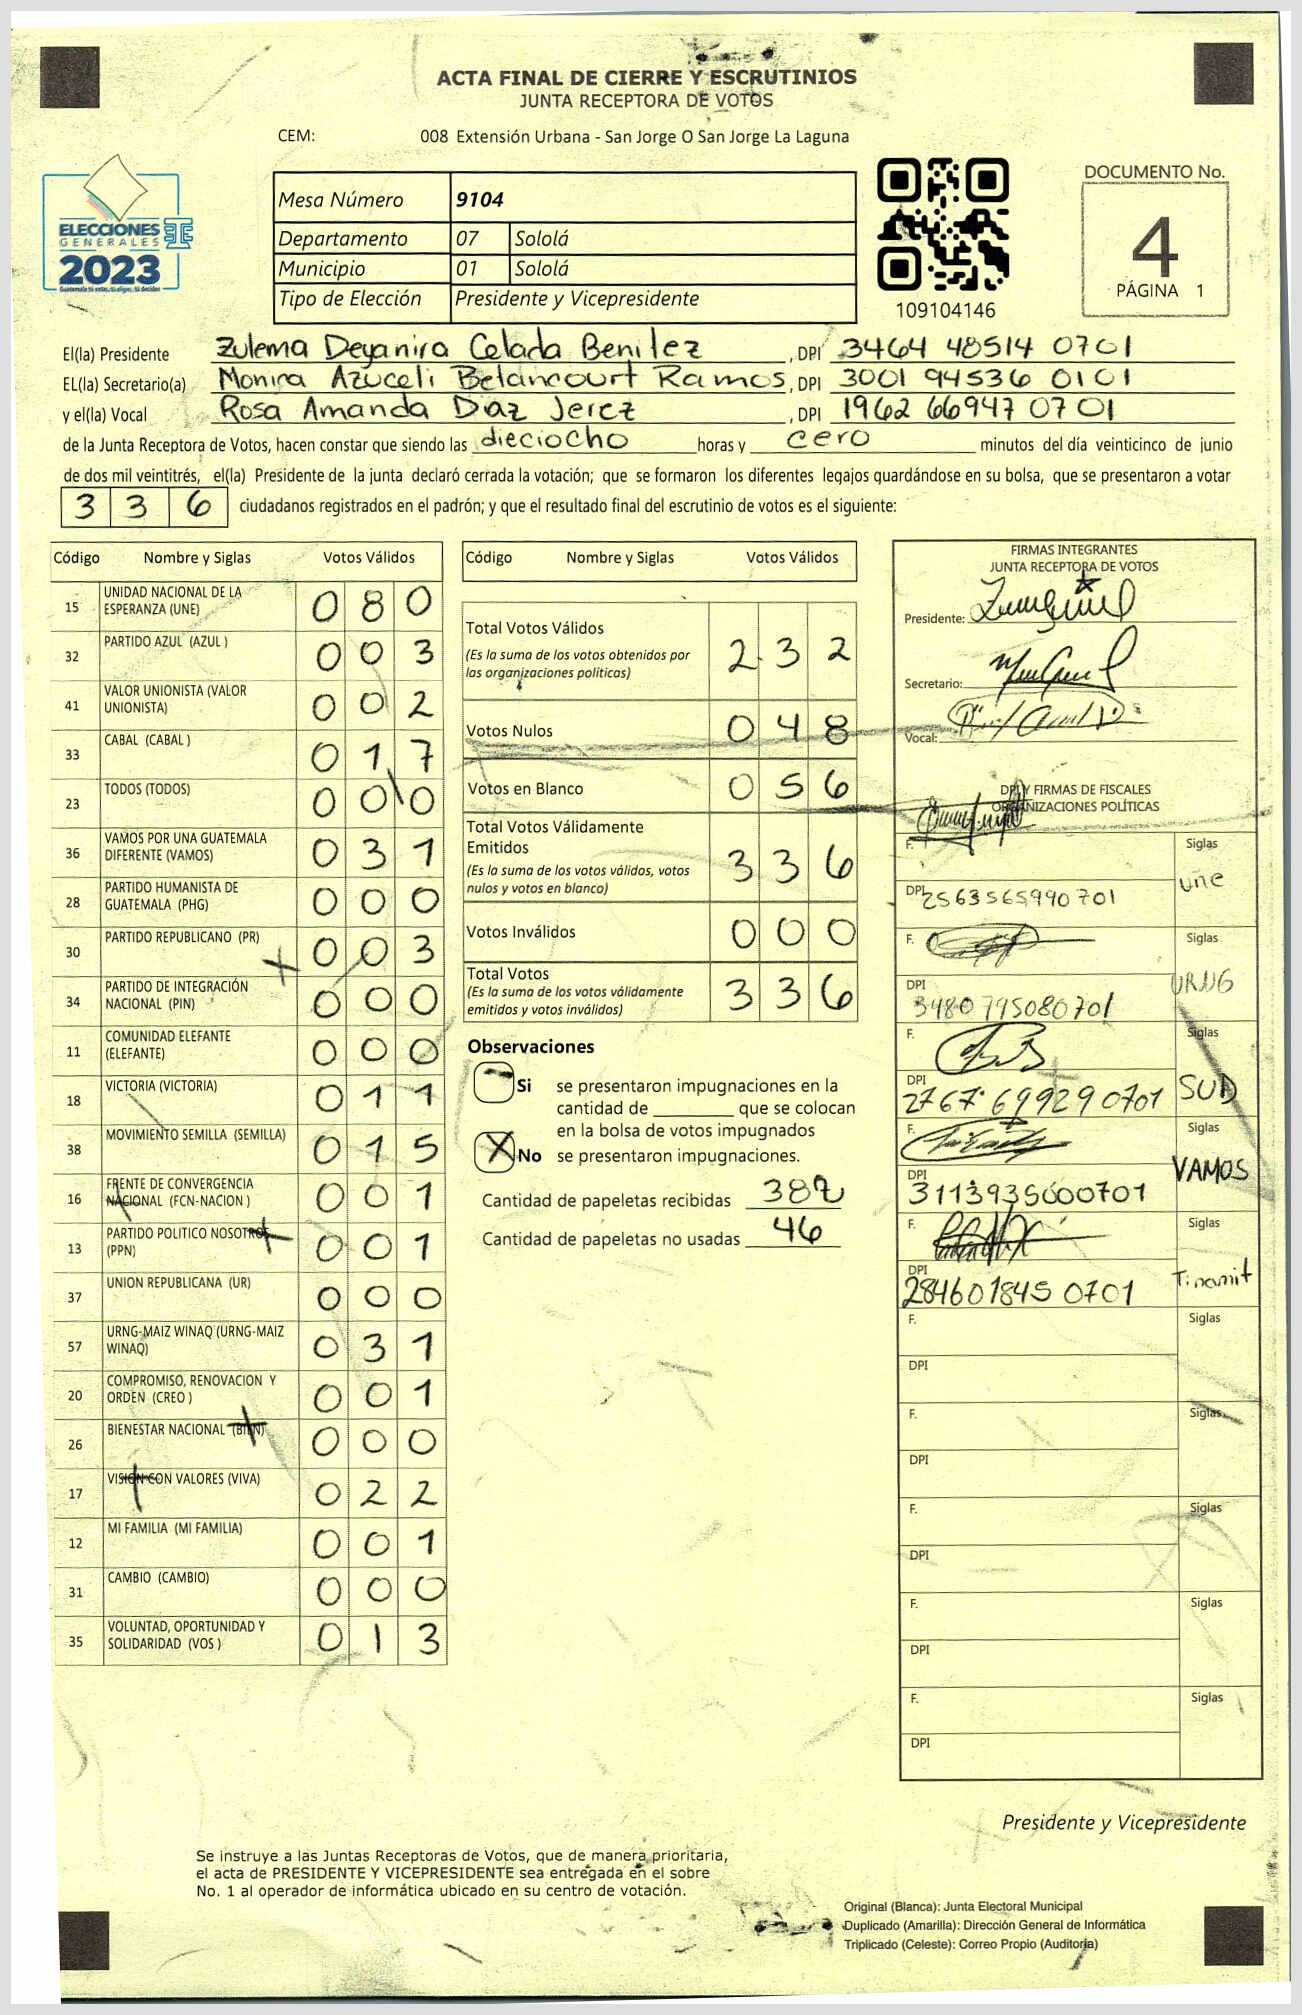 ACTA FINAL DE CIERRE Y ESCRUTINIOS
JUNTA RECEPTORA DE VOTOS
CEM: 008 Extensión Urbana - San Jorge O San Jorge La Laguna
ELECCIONES
GENERALES
2023
Mesa Número 9104
Departamento 07 Sololá
Municipio 01 Sololá
Tipo de Elección Presidente y Vicepresidente
109104146
DOCUMENTO No.
4
PÁGINA 1
El(la) Presidente Zulema Deyanira Celada Benitez, DPI 3464 48514 0701
EL(la) Secretario(a) Monica Azuceli Betancourt Ramos, DPI 3001 94536 0101
y el(la) Vocal Rosa Amanda Diaz Jerez, DPI 1962 66947 0701
de la Junta Receptora de Votos, hacen constar que siendo las dieciocho horas y cero minutos del día veinticinco de junio
de dos mil veintitrés, el(la) Presidente de la junta declaró cerrada la votación; que se formaron los diferentes legajos guardándose en su bolsa, que se presentaron a votar
336 ciudadanos registrados en el padrón; y que el resultado final del escrutinio de votos es el siguiente:
Código Nombre y Siglas Votos Válidos
15 UNIDAD NACIONAL DE LA ESPERANZA (UNE) 080
32 PARTIDO AZUL (AZUL ) 003
41 VALOR UNIONISTA (VALOR UNIONISTA) 002
33 CABAL (CABAL ) 017
23 TODOS (TODOS) 000
36 VAMOS POR UNA GUATEMALA DIFERENTE (VAMOS) 031
28 PARTIDO HUMANISTA DE GUATEMALA (PHG) 000
30 PARTIDO REPUBLICANO (PR) 003
34 PARTIDO DE INTEGRACIÓN NACIONAL (PIN) 000
11 COMUNIDAD ELEFANTE (ELEFANTE) 000
18 VICTORIA (VICTORIA) 011
38 MOVIMIENTO SEMILLA (SEMILLA) 015
16 FRENTE DE CONVERGENCIA NACIONAL (FCN-NACION ) 001
13 PARTIDO POLITICO NOSOTROS (PPN) 001
37 UNION REPUBLICANA (UR) 000
57 URNG-MAIZ WINAQ (URNG-MAIZ WINAQ) 031
20 COMPROMISO, RENOVACION Y ORDEN (CREO ) 001
26 BIENESTAR NACIONAL (BIEN) 000
17 VISION CON VALORES (VIVA) 022
12 MI FAMILIA (MI FAMILIA) 001
31 CAMBIO (CAMBIO) 000
35 VOLUNTAD, OPORTUNIDAD Y SOLIDARIDAD (VOS ) 013
Código Nombre y Siglas Votos Válidos
Total Votos Válidos 232
(Es la suma de los votos obtenidos por
las organizaciones politicas)
Votos Nulos 048
Votos en Blanco 056
Total Votos Válidamente
Emitidos 336
(Es la suma de los votos válidos, votos
nulos y votos en blanco)
Votos Inválidos 000
Total Votos 336
(Es la suma de los votos válidamente
emitidos y votos inválidos)
Observaciones
Si se presentaron impugnaciones en la
cantidad de ________ que se colocan
en la bolsa de votos impugnados
X No se presentaron impugnaciones.
Cantidad de papeletas recibidas 382
Cantidad de papeletas no usadas 46
FIRMAS INTEGRANTES
JUNTA RECEPTORA DE VOTOS
Presidente:
Secretario:
Vocal:
DPI Y FIRMAS DE FISCALES
ORGANIZACIONES POLÍTICAS
F. Siglas
DPI 2563565990701 une
F. Siglas
DPI 3480795080701 URNG
F. Siglas
DPI 2767 699290701 SUD
F. Siglas
DPI 3113935000701 VAMOS
F. Siglas
DPI 284601845 0701 Tinamit
F. Siglas
DPI
F. Siglas
DPI
F. Siglas
DPI
F. Siglas
DPI
F. Siglas
DPI
Presidente y Vicepresidente
Se instruye a las Juntas Receptoras de Votos, que de manera prioritaria,
el acta de PRESIDENTE Y VICEPRESIDENTE sea entregada en el sobre
No. 1 al operador de informática ubicado en su centro de votación.
Original (Blanca): Junta Electoral Municipal
Duplicado (Amarilla): Dirección General de Informática
Triplicado (Celeste): Correo Propio (Auditoria)